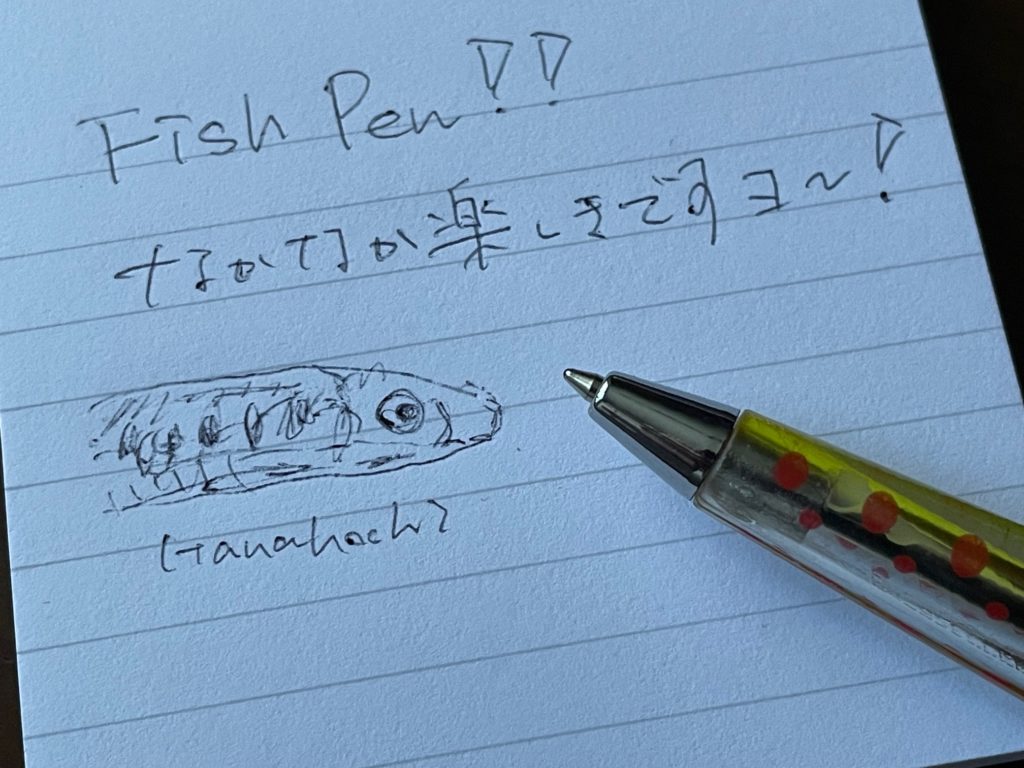 Fish Pen!!
なかなか楽しきですヨ〜!
(Hanahachi)